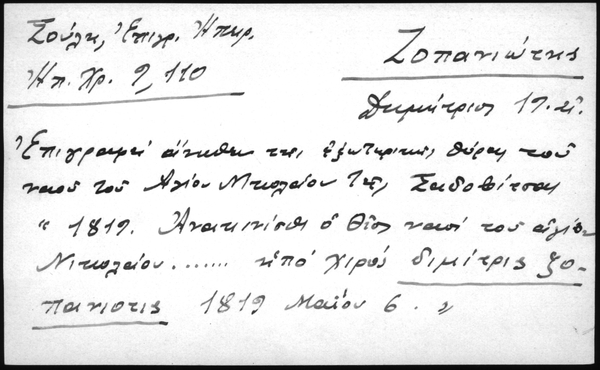 Σούλη, Ἐπιγρ. Ἠπειρ.
Ἠπ. Χρ. 9, 110
Ζοπανιώτης
Δημήτριος 19. αἰ.
Ἐπιγραφὴ ἄνωθεν τῆς ἐξωτερικῆς θύρας τοῦ
ναοῦ τοῦ Ἁγίου Νικολάου τῆς Σαδοβίτσας
“ 1819. Ἀνακινίσθι ὁ θῖος ναὸς τοῦ ἁγίου
Νικολαίου....... ἠπὸ χιρὸς διμίτρις ζο-
πανιοτις 1819 Μαΐου 6. „